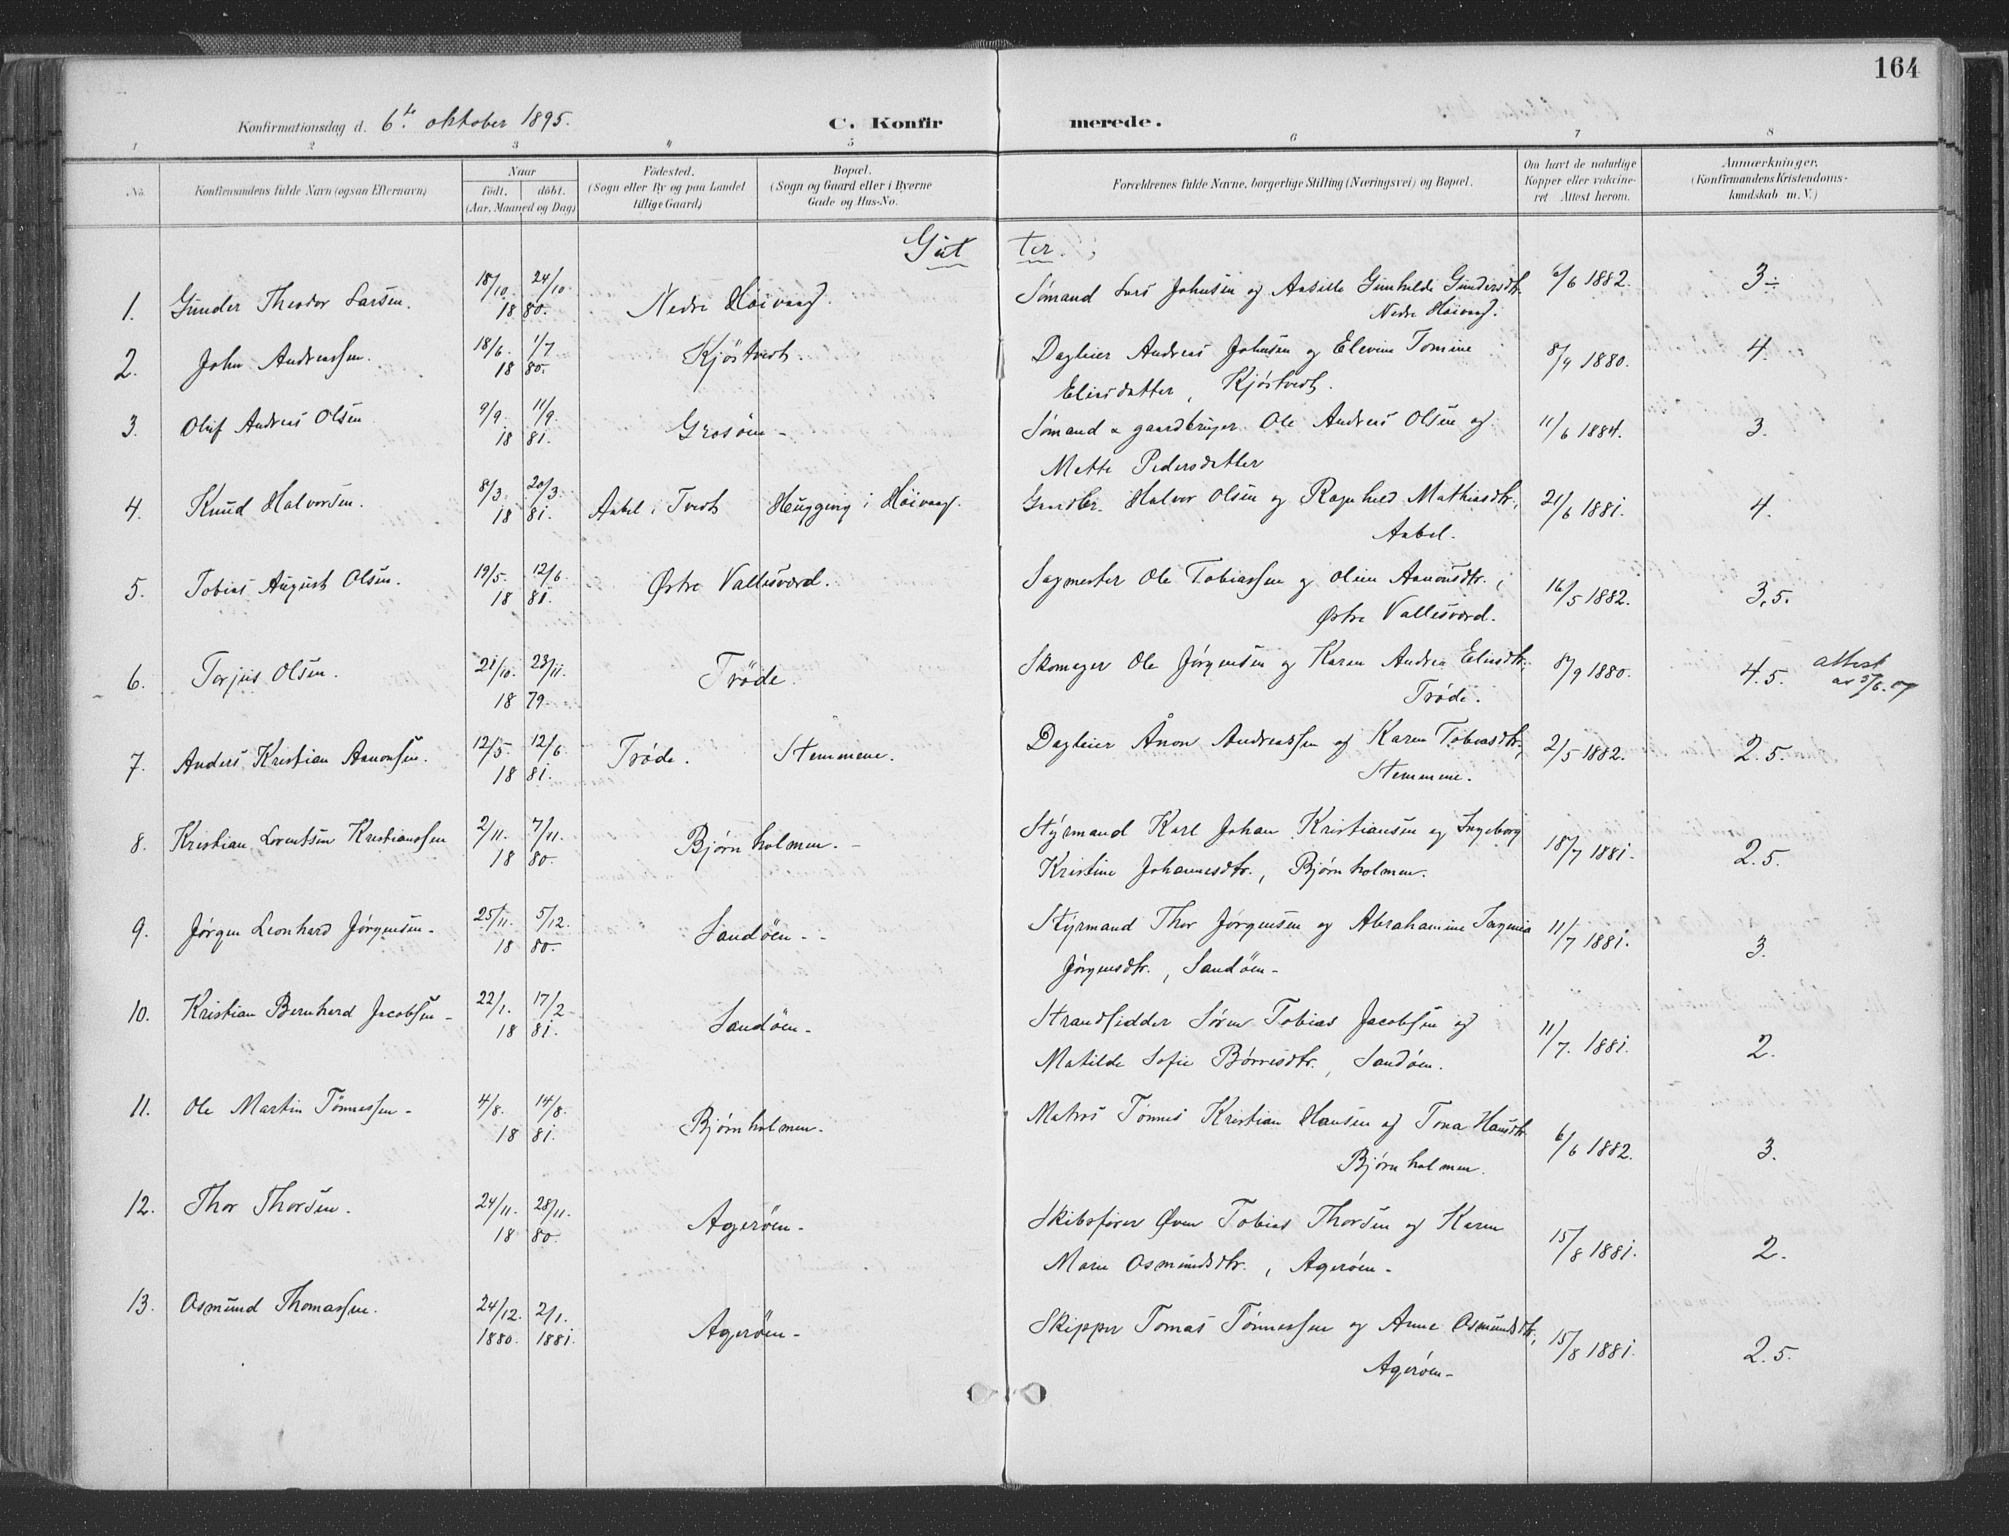 164
Konfirmationsdag d. 6te oktober 1895. C. Konfir merede.
1 2 3 4 5 6 7 8
No. Konfirmandens fulde Navn (ogsaa Efternavn) Naar Födt. döbt. (Aar, Maaned og Dag) Födested. (Sogn eller By og paa Landet tillige Gaard) Bopæl. (Sogn og Gaard eller i Byerne Gade og Hus-No. Forældrenes fulde Navne, borgerlige Stilling (Næringsvei) og Bopæl. Om havt de naturlige Kopper eller vakcineret. Attest herom. Anmærkninger. (Konfirmandens Kristendomskundskab m. V.)
Gut ter.
1. Gunder Theodor Larsen. 18/10. 24/10. Nedre Höivaag. Sömand Lars Johnsen og Aasille Gunhilde Gundersdtr. 6/6 1882. 3÷
18 80. Nedre Höivaag.
2. John Andreassen. 18/6. 1/7 Kjöstvedt. Dagleier Andreas Johnsen og Elevine Tomine 8/9 1880. 4
18 80. Eliasdatter, Kjöstvedt.
3. Oluf Andreas Olsen 9/9. 11/9. Grosöen - Sömand & gaardbruger Ole Andreas Olsen og 11/6 1884. 3.
18 81. Mette Pedersdatter
4. Knud Halvorsen. 8/3. 20/3. Aabel i Tvedt Heuggving i Höivaag. Gaardbr. Halvor Olsen og Ragnhild Mathiasdtr, 21/6 1881. 4.
18 81. Aabel.
5. Tobias August Olsen. 19/5. 12/6. Østre Vallesværd. Sagmester Ole Tobiassen og Oline Aanonsdtr., 16/5 1882. 3,5.
18 81. Østre Vallesværd.
6. Torjus Olsen. 21/10. 23/11. Tröde. Skomager Ole Jørgensen og Karen Andrea Eliasdtr., 8/9 1880. 4.5. attest
18 79. Tröde. av 5/6.07
7. Anders Kristian Aanonsen. 12/5. 12/6 Tröde. Stemmene. Dagleier Ånon Andreassen og Karen Tobiasdtr., 2/5 1882. 2.5.
18 81. Stemmene.
8. Kristian Lorentsen Kristianssen 2/11. 7/11. Bjørnholmen. - Styrmand Karl Johan Kristiansen og Ingeborg 18/7 1881. 2.5.
18 80. Kristine Johannesdtr., Bjørnholmen.
9. Jörgen Leonhard Jörgensen - 25/11. 5/12. Sandöen - - Styrmand Thor Jørgensen og Abrahamine 11/7 1881. 3.
18 80. Jörgensdtr., Sandöen -
10. Kristian Bernhard Jacobsen - 22/1. 17/2 Sandöen - Strandsidder Sören Tobias Jacobsen og 11/7. 1881. 2.
18 81. Matilde Sofie Børresdtr., Sandöen.
11. Ole Martin Tönnessen - 4/8. 14/8. Bjørnholmen - Matros Tönnes Kristian Hansen og Tona Hansdtr 6/6 1882. 3.
18 81. Bjørnholmen.
12. Thor Thorsen. 24/11. 28/11. Ageröen - Skibsfører Øven Tobias Thorsen og Karen 15/8 1881. 2.
18 80. Marie Osmundsdtr., Ageröen -
13. Osmund Thomassen. 24/12. 2/1. Ageröen - Skipper Tomas Tönnessen og Anne Osmundsdtr, 15/8 1881. 2.5.
1880. 1881. Ageröen -